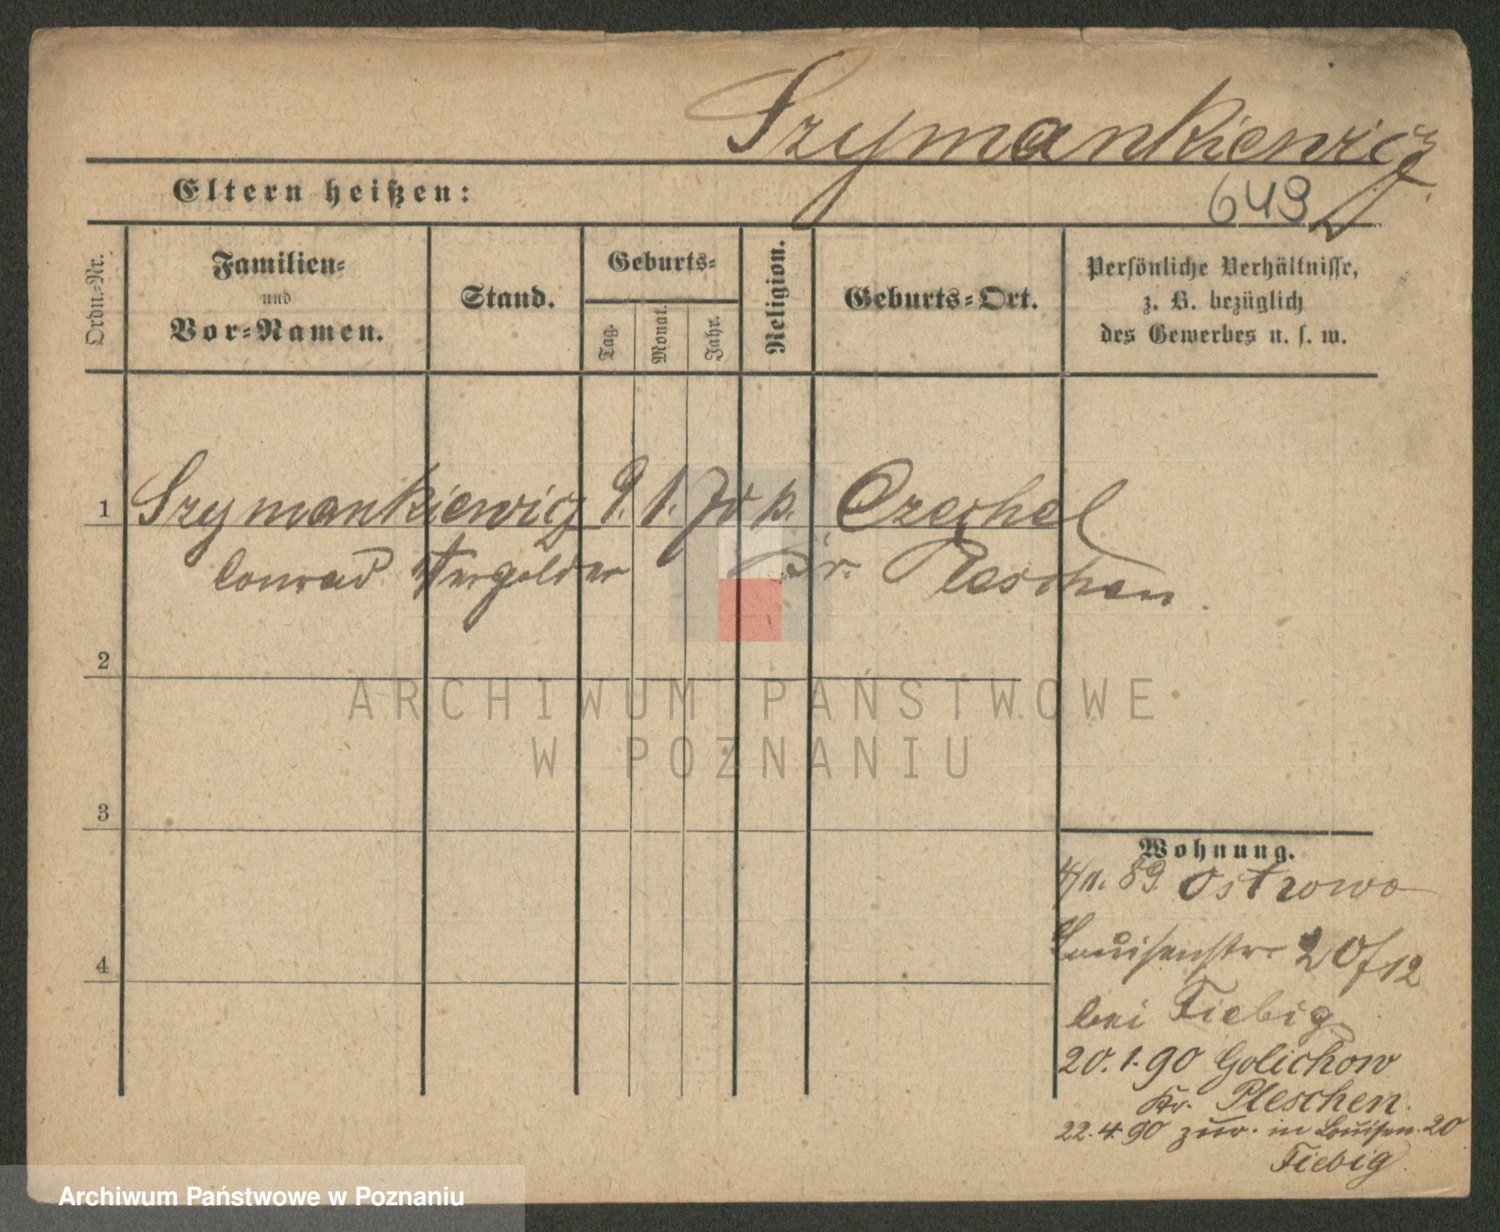 Szymankiewicz
Eltern heißen:
649
Ordn.-Nr.
Familien-
und
Vor-Namen.
Stand.
Geburts-
Tag.
Monat.
Jahr.
Religion.
Geburts-Ort.
Persönliche Verhältnisse,
z. B. bezüglich
des Gewerbes u. s. w.
1 Szymankiewicz 9. 1. 70 k. Czechel
Conrad Vergolder Kr. Pleschen.
2
ARCHIWUM PAŃSTWOWE
W POZNANIU
3
4
Wohnung.
4/1. 89 Ostrowo
Louisenstr 20/12
bei Fiebig
20.1.90 Golichow
Kr. Pleschen.
22.4.90 zur. in Louisen. 20
Fiebig.
Archiwum Państwowe w Poznaniu